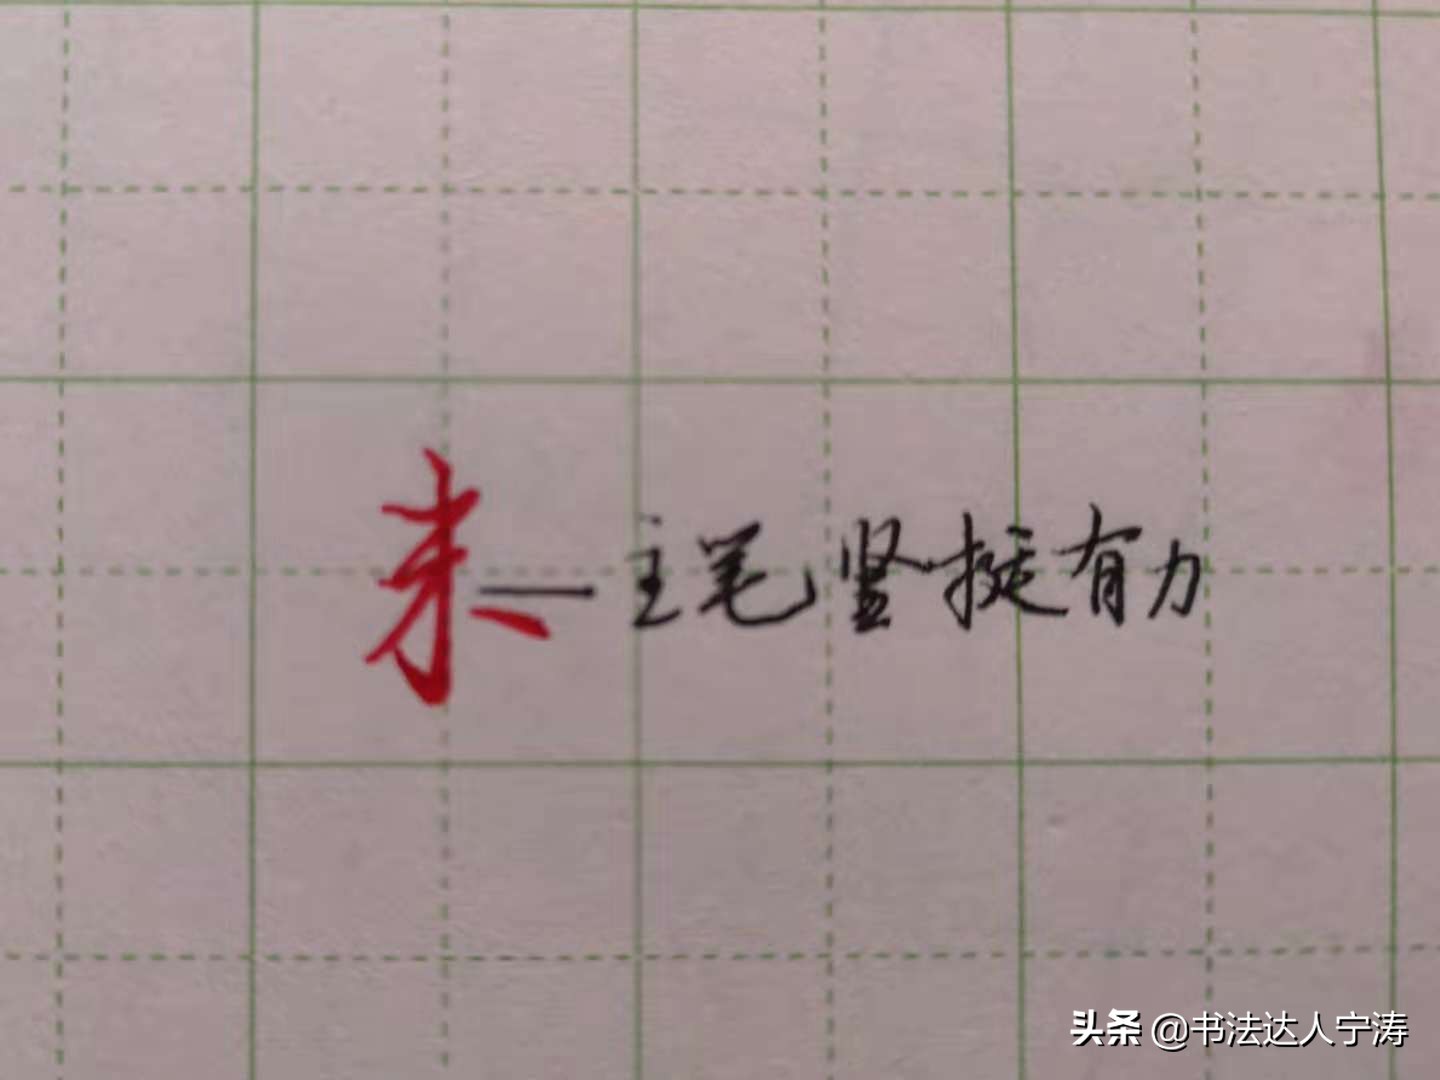 未—主笔竖挺有力
头条 @书法达人宁涛